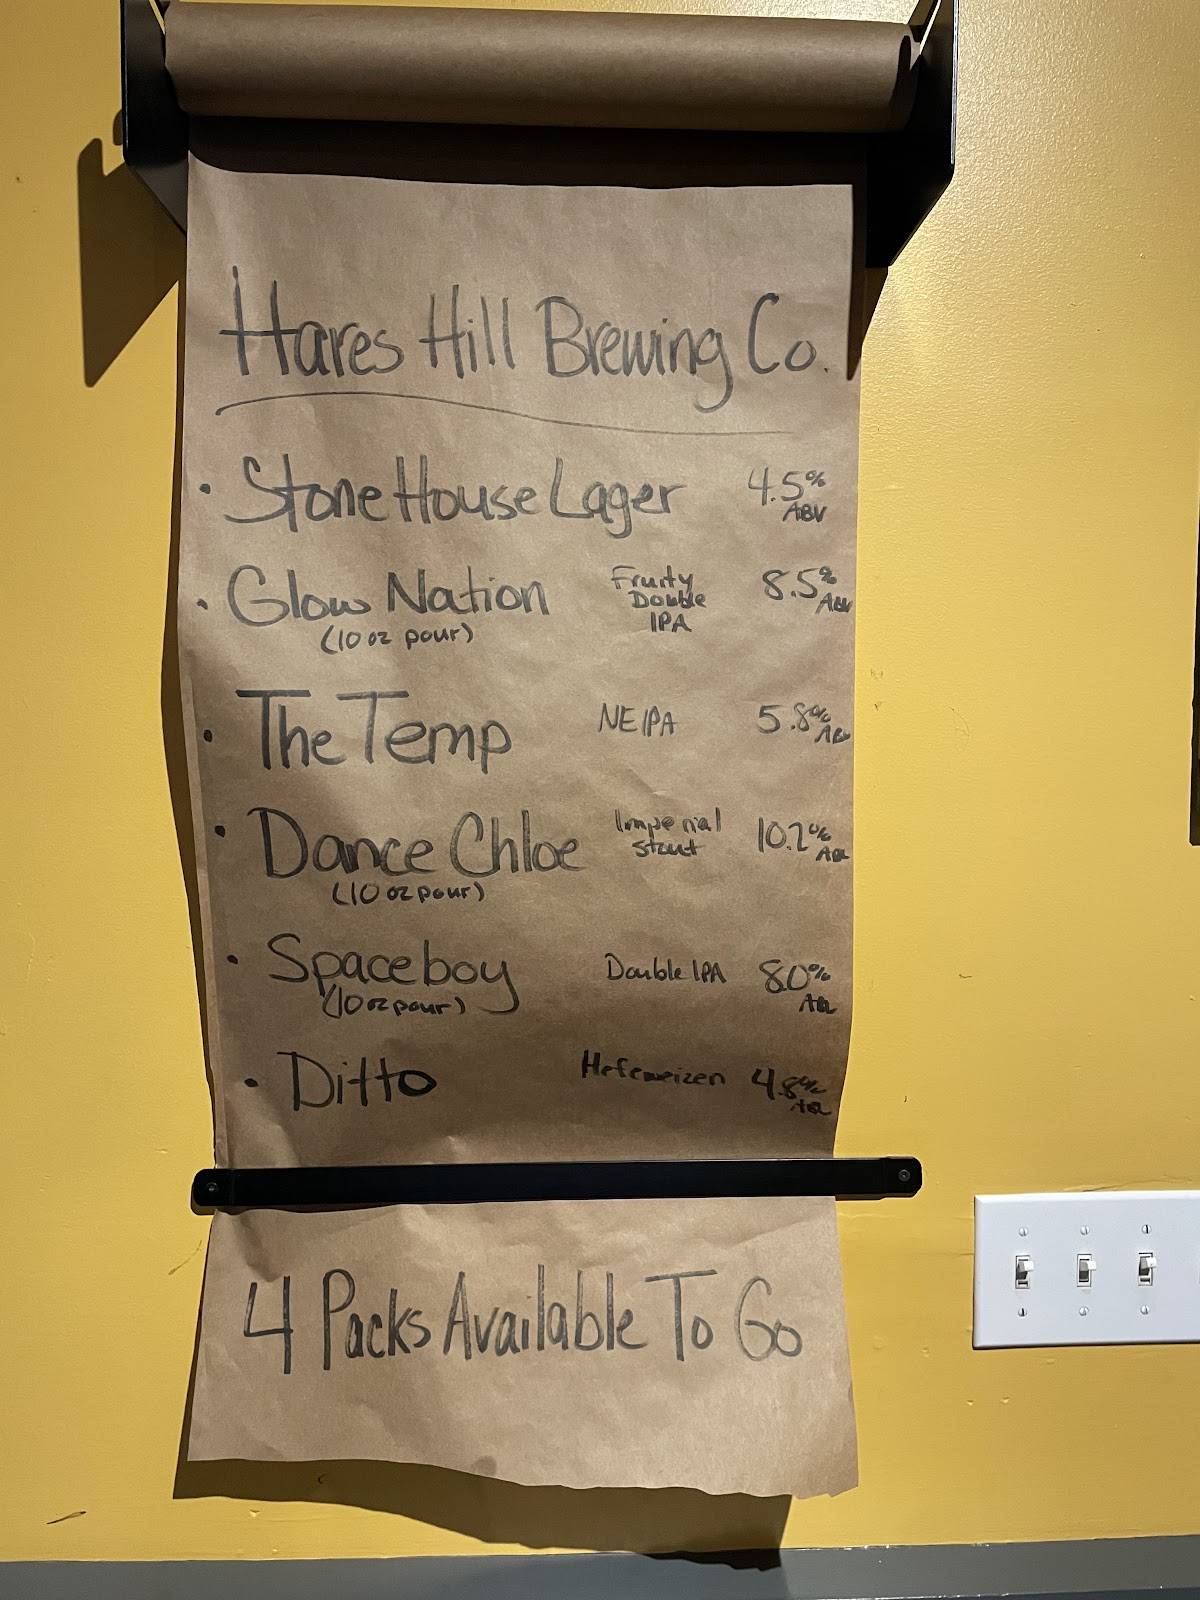 Hares Hill Brewing Co.
• Stone House Lager 4.5% ABV
• Glow Nation Fruity Double IPA 8.5% ABV
(10 oz pour)
• The Temp NEIPA 5.8% ABV
• Dance Chloe Imperial Stout 10.2% ABV
(10 oz pour)
• Spaceboy Double IPA 8.0% ABV
(10 oz pour)
• Ditto Hefeweizen 4.8% ABV
4 Packs Available To Go